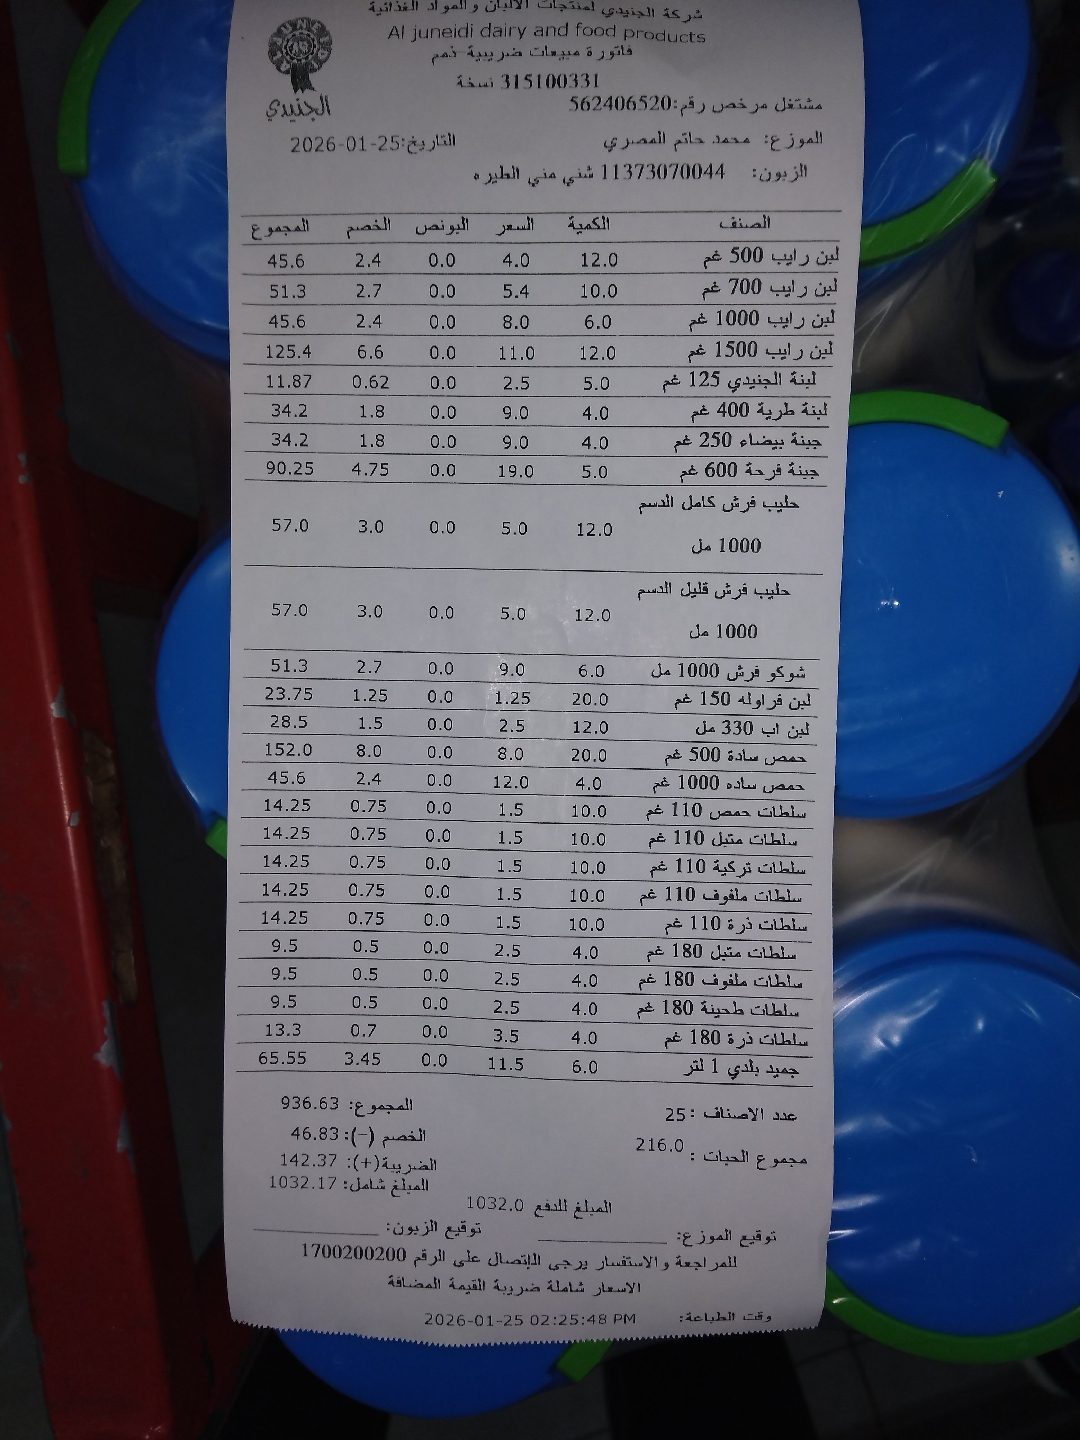 شركة الجنيدي لمنتجات الألبان والمواد الغذائية
Al juneidi dairy and food products
فاتورة مبيعات ضريبية ذمم
315100331 نسخة
الجنيدي
مشتغل مرخص رقم:562406520
الموزع: محمد حاتم المصري التاريخ:2026-01-25
الزبون: 11373070044 شني مني الطيره
الصنف الكمية السعر البونص الخصم المجموع
لبن رايب 500 غم 12.0 4.0 0.0 2.4 45.6
لبن رايب 700 غم 10.0 5.4 0.0 2.7 51.3
لبن رايب 1000 غم 6.0 8.0 0.0 2.4 45.6
لبن رايب 1500 غم 12.0 11.0 0.0 6.6 125.4
لبنة الجنيدي 125 غم 5.0 2.5 0.0 0.62 11.87
لبنة طرية 400 غم 4.0 9.0 0.0 1.8 34.2
جبنة بيضاء 250 غم 4.0 9.0 0.0 1.8 34.2
جبنة فرحة 600 غم 5.0 19.0 0.0 4.75 90.25
حليب فرش كامل الدسم
1000 مل 12.0 5.0 0.0 3.0 57.0
حليب فرش قليل الدسم
1000 مل 12.0 5.0 0.0 3.0 57.0
شوكو فرش 1000 مل 6.0 9.0 0.0 2.7 51.3
لبن فراوله 150 غم 20.0 1.25 0.0 1.25 23.75
لبن اب 330 مل 12.0 2.5 0.0 1.5 28.5
حمص سادة 500 غم 20.0 8.0 0.0 8.0 152.0
حمص ساده 1000 غم 4.0 12.0 0.0 2.4 45.6
سلطات حمص 110 غم 10.0 1.5 0.0 0.75 14.25
سلطات متبل 110 غم 10.0 1.5 0.0 0.75 14.25
سلطات تركية 110 غم 10.0 1.5 0.0 0.75 14.25
سلطات ملفوف 110 غم 10.0 1.5 0.0 0.75 14.25
سلطات ذرة 110 غم 10.0 1.5 0.0 0.75 14.25
سلطات متبل 180 غم 4.0 2.5 0.0 0.5 9.5
سلطات ملفوف 180 غم 4.0 2.5 0.0 0.5 9.5
سلطات طحينة 180 غم 4.0 2.5 0.0 0.5 9.5
سلطات ذرة 180 غم 4.0 3.5 0.0 0.7 13.3
جميد بلدي 1 لتر 6.0 11.5 0.0 3.45 65.55
عدد الاصناف : 25 المجموع: 936.63
الخصم (-): 46.83
مجموع الحبات : 216.0 الضريبة(+): 142.37
المبلغ شامل: 1032.17
المبلغ للدفع 1032.0
توقيع الموزع: ____________ توقيع الزبون: ____________
للمراجعة والاستفسار يرجى الإتصال على الرقم 1700200200
الاسعار شاملة ضريبة القيمة المضافة
وقت الطباعة: 2026-01-25 02:25:48 PM